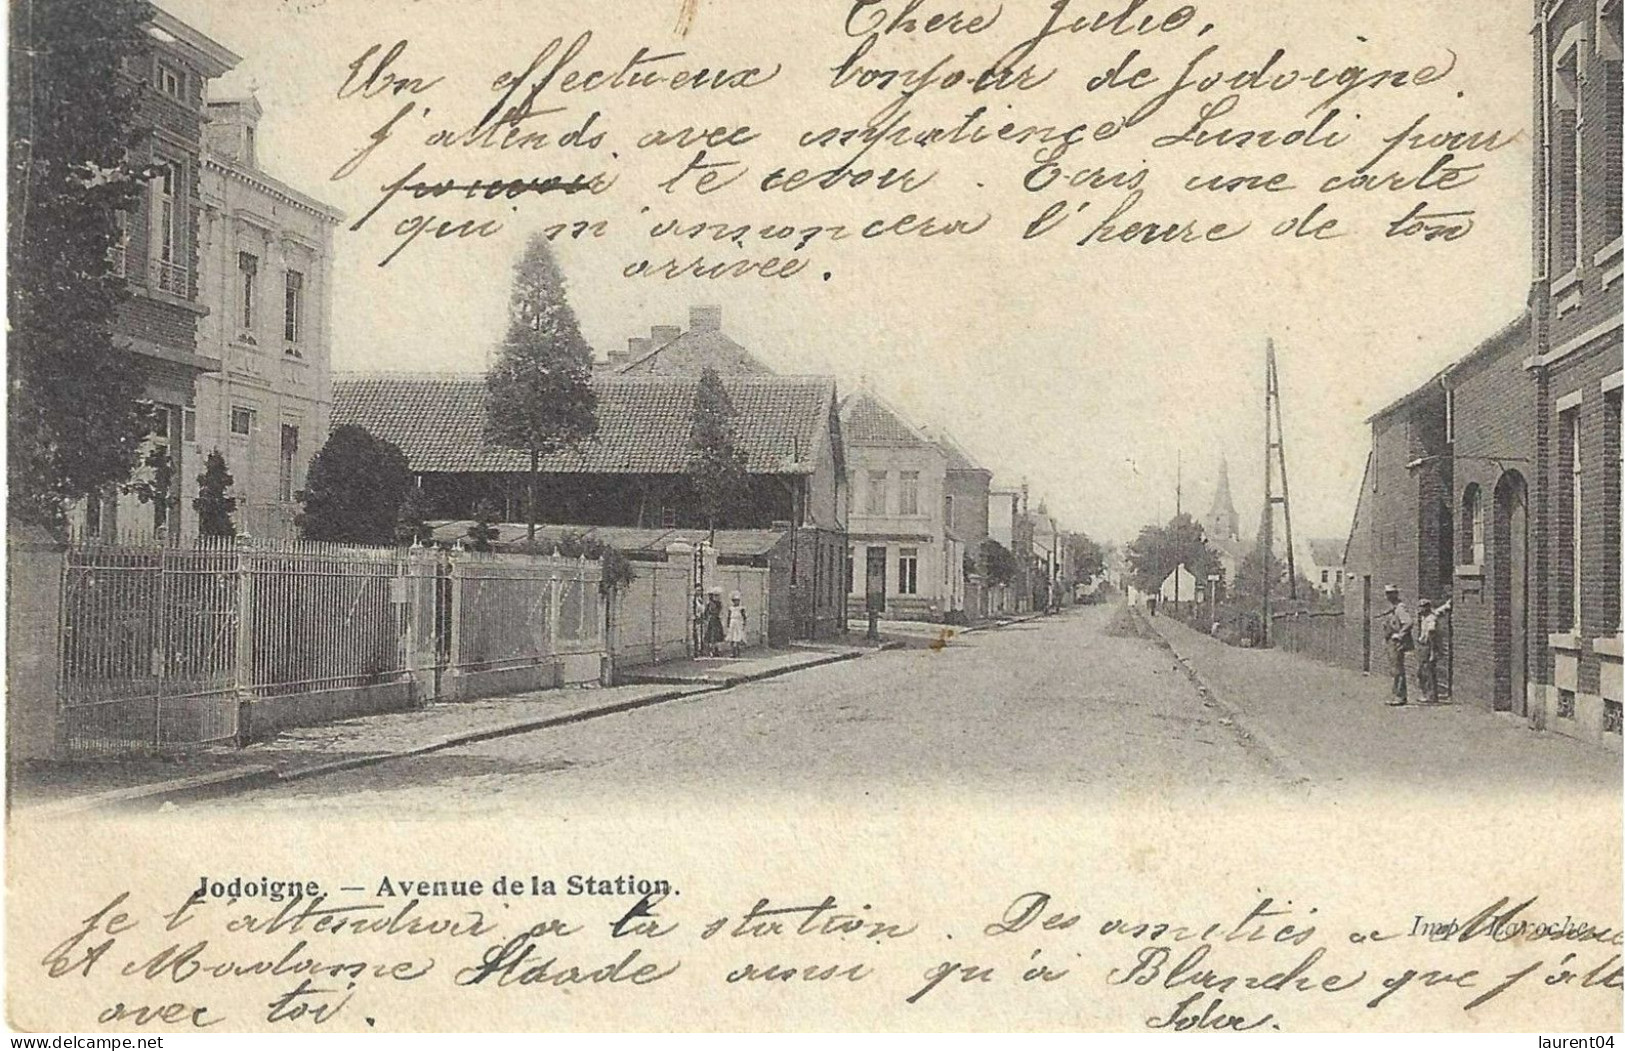 Chere Julie,
Un effectueux bonjour de Jodoigne.
J'attends avec impatience Lundi pour
pouvoir te revoir. Ecris une carte
qui m'annoncera l'heure de ton
arrivée.
Jodoigne. — Avenue de la Station.
Je t'attendrai a la station. Des amitiés a
Imp. Laroche
Et Madame Staade ainsi qu'à Blanche que j'
avec toi.
delcampe.net
laurent04